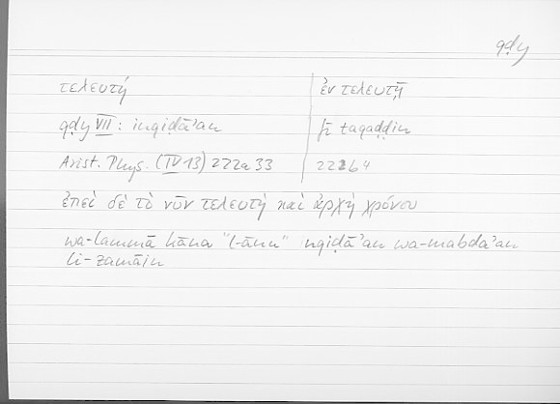 qḍy
τελευτή | ἐν τελευτῇ
qḍy VII: inqiḍāʾan | fī taqaḍḍin
Arist. Phys. (IV 13) 222a33 | 222b4
ἐπεὶ δὲ τὸ νῦν τελευτὴ καὶ ἀρχὴ χρόνου
wa-lammā kāna "l-ānu" nqiḍāʾan wa-mabdaʾan
li-zamānin